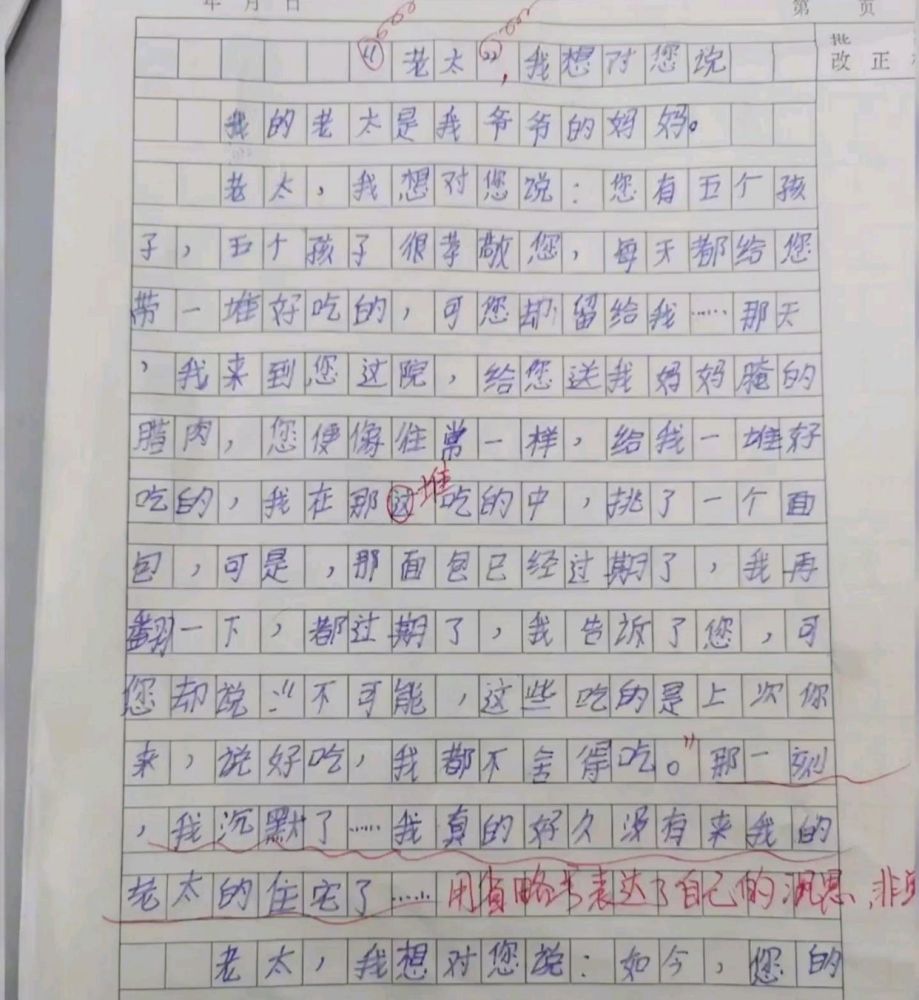 年 月 日 第 页
批
改 正
“老太”，我想对您说
我的老太是我爷爷的妈妈。
老太，我想对您说：您有五个孩
子，五个孩子很孝敬您，每天都给您
带一堆好吃的，可您却留给我……那天
，我来到您过院，给您送我妈妈腌的
腊肉，您便像往常一样，给我一堆好
堆
吃的，我在那这吃的中，挑了一个面
包，可是，那面包已经过期了，我再
翻一下，都过期了，我告诉了您，可
您却说：“不可能，这些吃的是上次你
来，说好吃，我都不舍得吃。”那一刻
，我沉默了……我真的好久没有来我的
老太的住宅了……用省略号表达了自己的沉思，非
老太，我想对您说：如今，您的